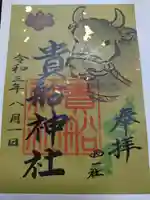 奉拝
貴船神社
貴船
令和三年八月一日